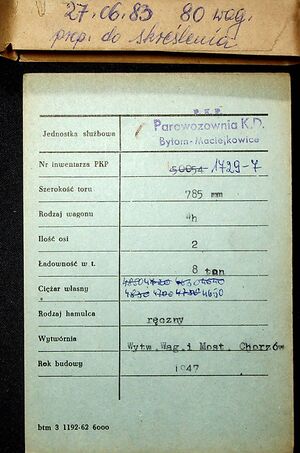 27.06.83 80 wag.
prop. do skreślenia
P.K.P.
Parowozownia K.D.
Jednostka służbowa
Bytom-Maciejkowice
Nr inwentarza PKP 50054 1729-7
Szerokość toru 785 mm
Rodzaj wagonu 4h
Ilość osi 2
Ładowność w t. 8 ton
Ciężar własny
4830 4700 4700 4650
Rodzaj hamulca ręczny
Wytwórnia Wytw.Wag.i Most. Chorzów
Rok budowy 1947
btm 3 1192-62 6000